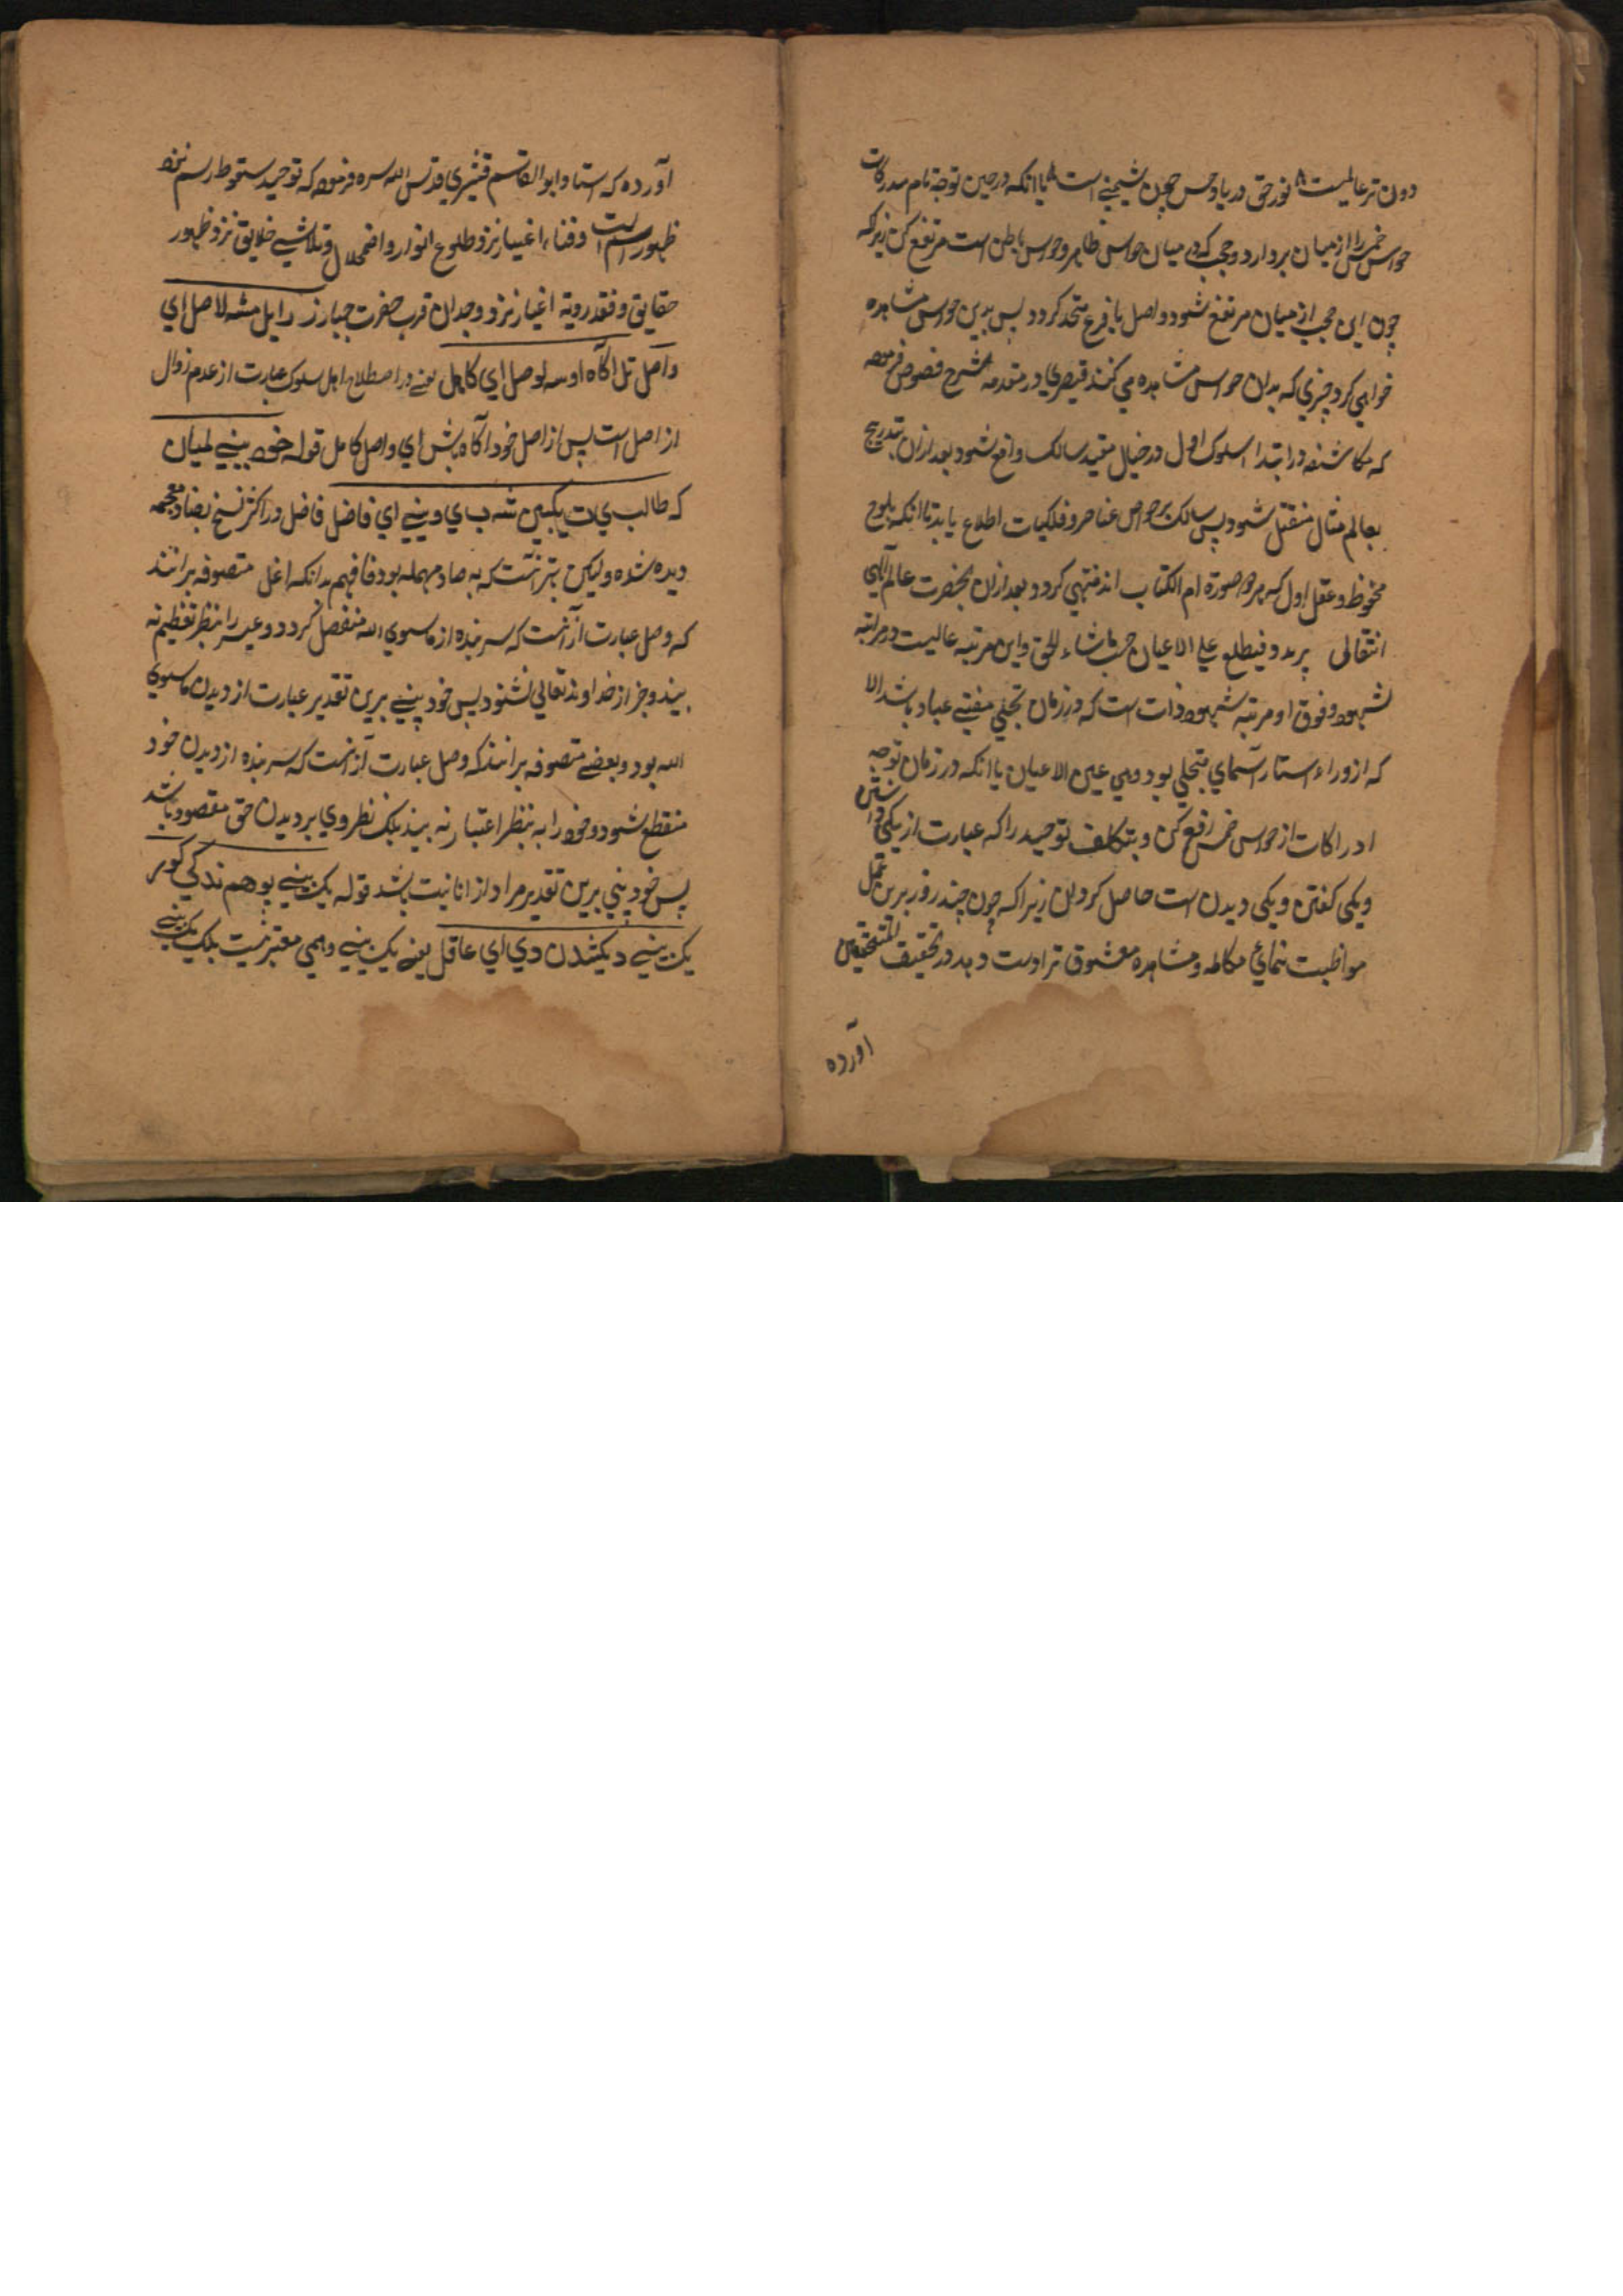 دون تر عالمیست ۸ نور حق دریا و حس چون شبنمی است ۸ یا انکه در حین توجه تمام مدرکات
حواس خمس را از میان بردارد و حجب که در میان حواس ظاهر و حواس باطن است مرتفع کن زیرکه
چون این حجب از میان مرتفع شود و اصل با فرع متحد کردد پس بدین حواس مشاهده
خواهی کرد چیزی که بدان حواس مشاهده می کنند قیصری در مقدمه شرح فصوص فرموده
که مکاشفه در ابتداء سلوک اول در خیال مقید سالک واقع شود بعد ازان بتدریج
بعالم مثال منتقل شود پس سالک بر خواص عناصر و فلکیات اطلاع یابد تا انکه بلوح
محفوظ و عقل اول که هر دو صورة ام الکتاب اند منتهی کردد و بعد ازان بحضرت عالم الهی
انتقالی پرید و فیطلع علی الاعیان حسب ماشاء للحق و این مرتبه عالیست در مراتبه
شهود و فوق او مرتبه شهود ذات است که در زمان تجلی مفنی عباد باشد الا
که از وراء استار آسمای متجلی بود و هی عین الاعیان یا انکه در زمان توجه
ادراکات از حواس خمس رافع کن و بتکلف توحید را که عبارت از یکی داشتن
و یکی کفتن و یکی دیدن است حاصل کردان زیرا که چون چند روز برین عمل
مواظبت نمائی مکالمه و مشاهده معشوق ترا دست دهد در تحقیقت المتحققین
آورده
آورده که استاد ابو القاسم قشیری قدس الله سره فرموده که توحید سقوط رسم نزد
ظهور اسم است و فناء اغیار نزد طلوع انوار و اضمحلال و تلاشی خلایق نزد ظهور
حقایق و فقد رویة اغیار نزد وجدان قرب حضرت جبار ز رایل مشه لاصل ای
واصل تل آکاه اوسه لوصل ای کاهل یعنی در اصطلاح اهل سلوک عبارت از عدم زوال
از اصل است پس از اصل خود آکاه باش ای واصل کامل قوله خود بینی لمیان
که طالب ی ت یکبین شه ب ی وینی ای فاضل فاضل در اکثر نسخ بضاد معجمه
دیده شده ولیکن بهتر آنست که به صاد مهمله بود فافهم بدانکه اغل متصوفه برانند
که وصل عبارت از آنست که سر بنده از ماسوی الله منفصل کردد و غیر را بنظر تعظیم نه
بیند و جز از خداوند تعالی نشنود پس خود بینی برین تقدیر عبارت از دیدن ماسوی
الله بود و بعضی متصوفه برانند که وصل عبارت از آنست که سر بنده از دیدن خود
منقطع شود و خود را به بنظر اعتبار نه بیند بلک نظر وی بر دیدن حق مقصود باشد
پس خود بینی برین تقدیر مراد از انانیت باشد قوله یک بینی بوهم ندکی کوبر
یک بینی دیکشدن دی ای عاقل یعنی یک بینی وهمی معتبر نیست بلک یک بینی